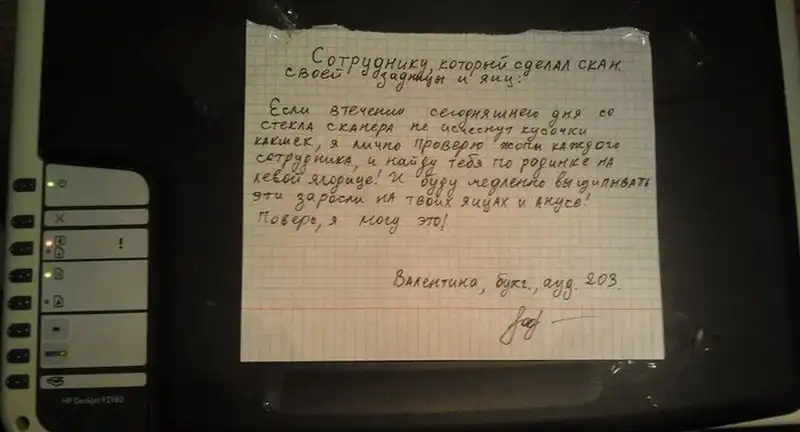 Сотруднику, который сделал скан
своей задницы и яиц:
Если втечении сегодняшнего дня со
стекла сканера не исчезнут кусочки
какашек, я лично проверю жопы каждого
сотрудника, и найду тебя по родинке на
левой ягодице! И буду медленно выщипывать
эти заросли на твоих яйцах и анусе!
Поверь, я могу это!
Валентина, бухг., ауд. 203.
HP Deskjet F2180